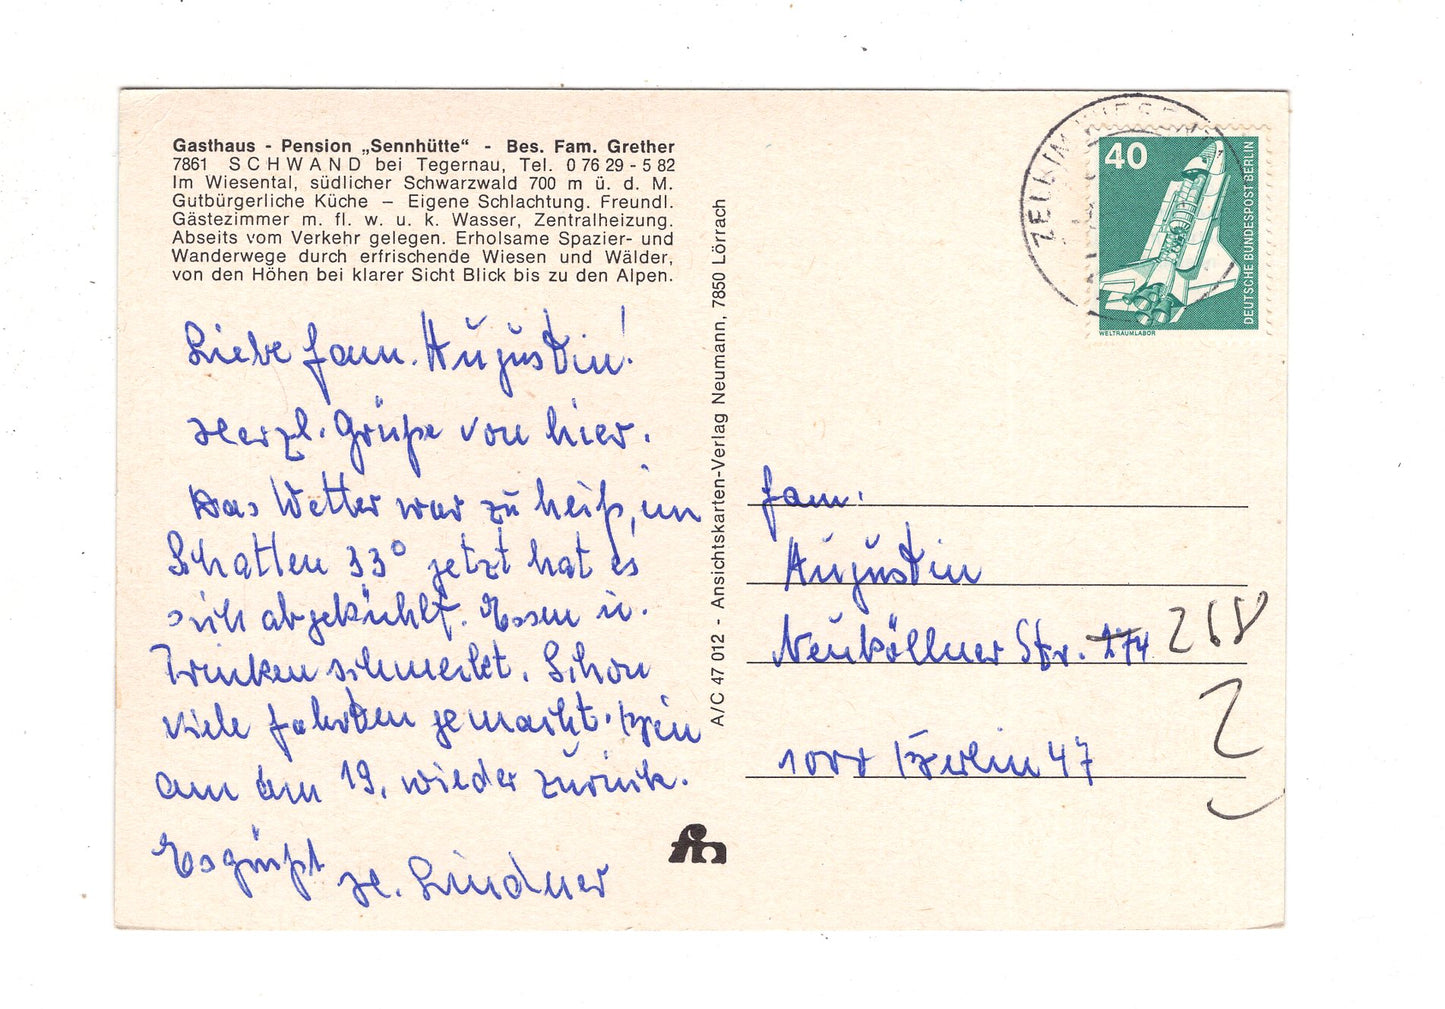 Gasthaus - Pension „Sennhütte“ - Bes. Fam. Grether
7861 SCHWAND bei Tegernau, Tel. 0 76 29 - 5 82
Im Wiesental, südlicher Schwarzwald 700 m ü. d. M.
Gutbürgerliche Küche – Eigene Schlachtung. Freundl.
Gästezimmer m. fl. w. u. k. Wasser, Zentralheizung.
Abseits vom Verkehr gelegen. Erholsame Spazier- und
Wanderwege durch erfrischende Wiesen und Wälder,
von den Höhen bei klarer Sicht Blick bis zu den Alpen.
Liebe Fam. Augustin!
Herzl. Grüße von hier.
Das Wetter war zu heiß, im
Schatten 33° jetzt hat es
sich abgekühlt. Essen u.
Trinken schmeckt. Schon
viele Fahrten gemacht. Bin
am den 19. wieder zurück.
Es grüßt H. Lindner
A/C 47 012 - Ansichtskarten-Verlag Neumann, 7850 Lörrach
ZELL IM WIESENTAL
40
DEUTSCHE BUNDESPOST BERLIN
WELTRAUMLABOR
Fam.
Augustin
Neuköllner Str. 274 268
2
1000 Berlin 47
fm